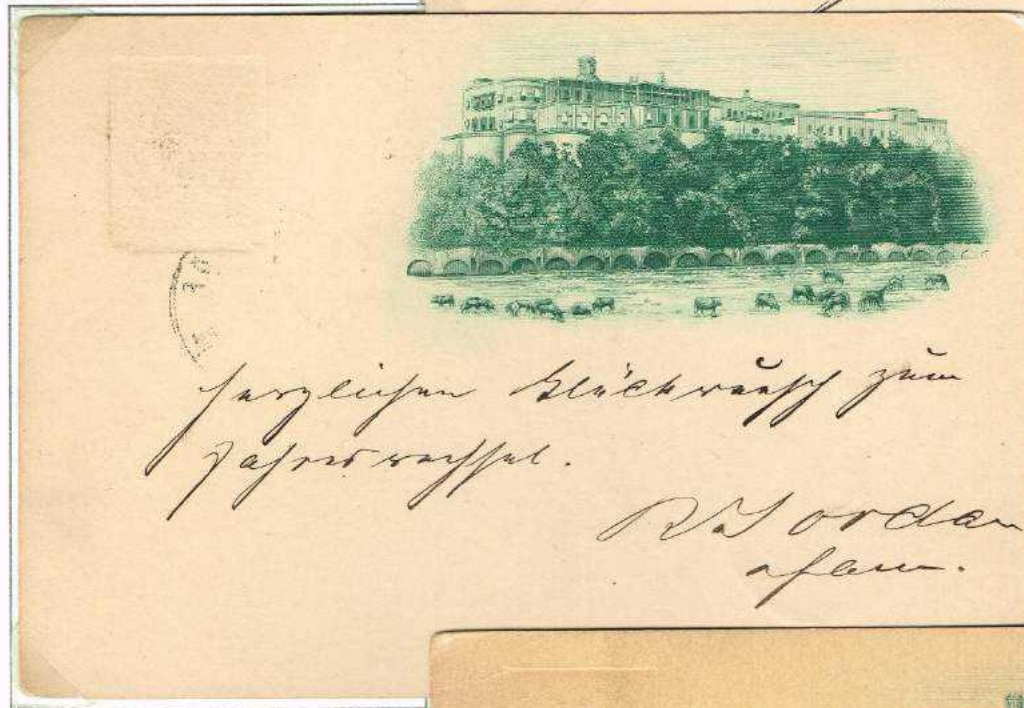 Herzlichen Glückwunsch zum
Jahreswechsel.
R Jordan